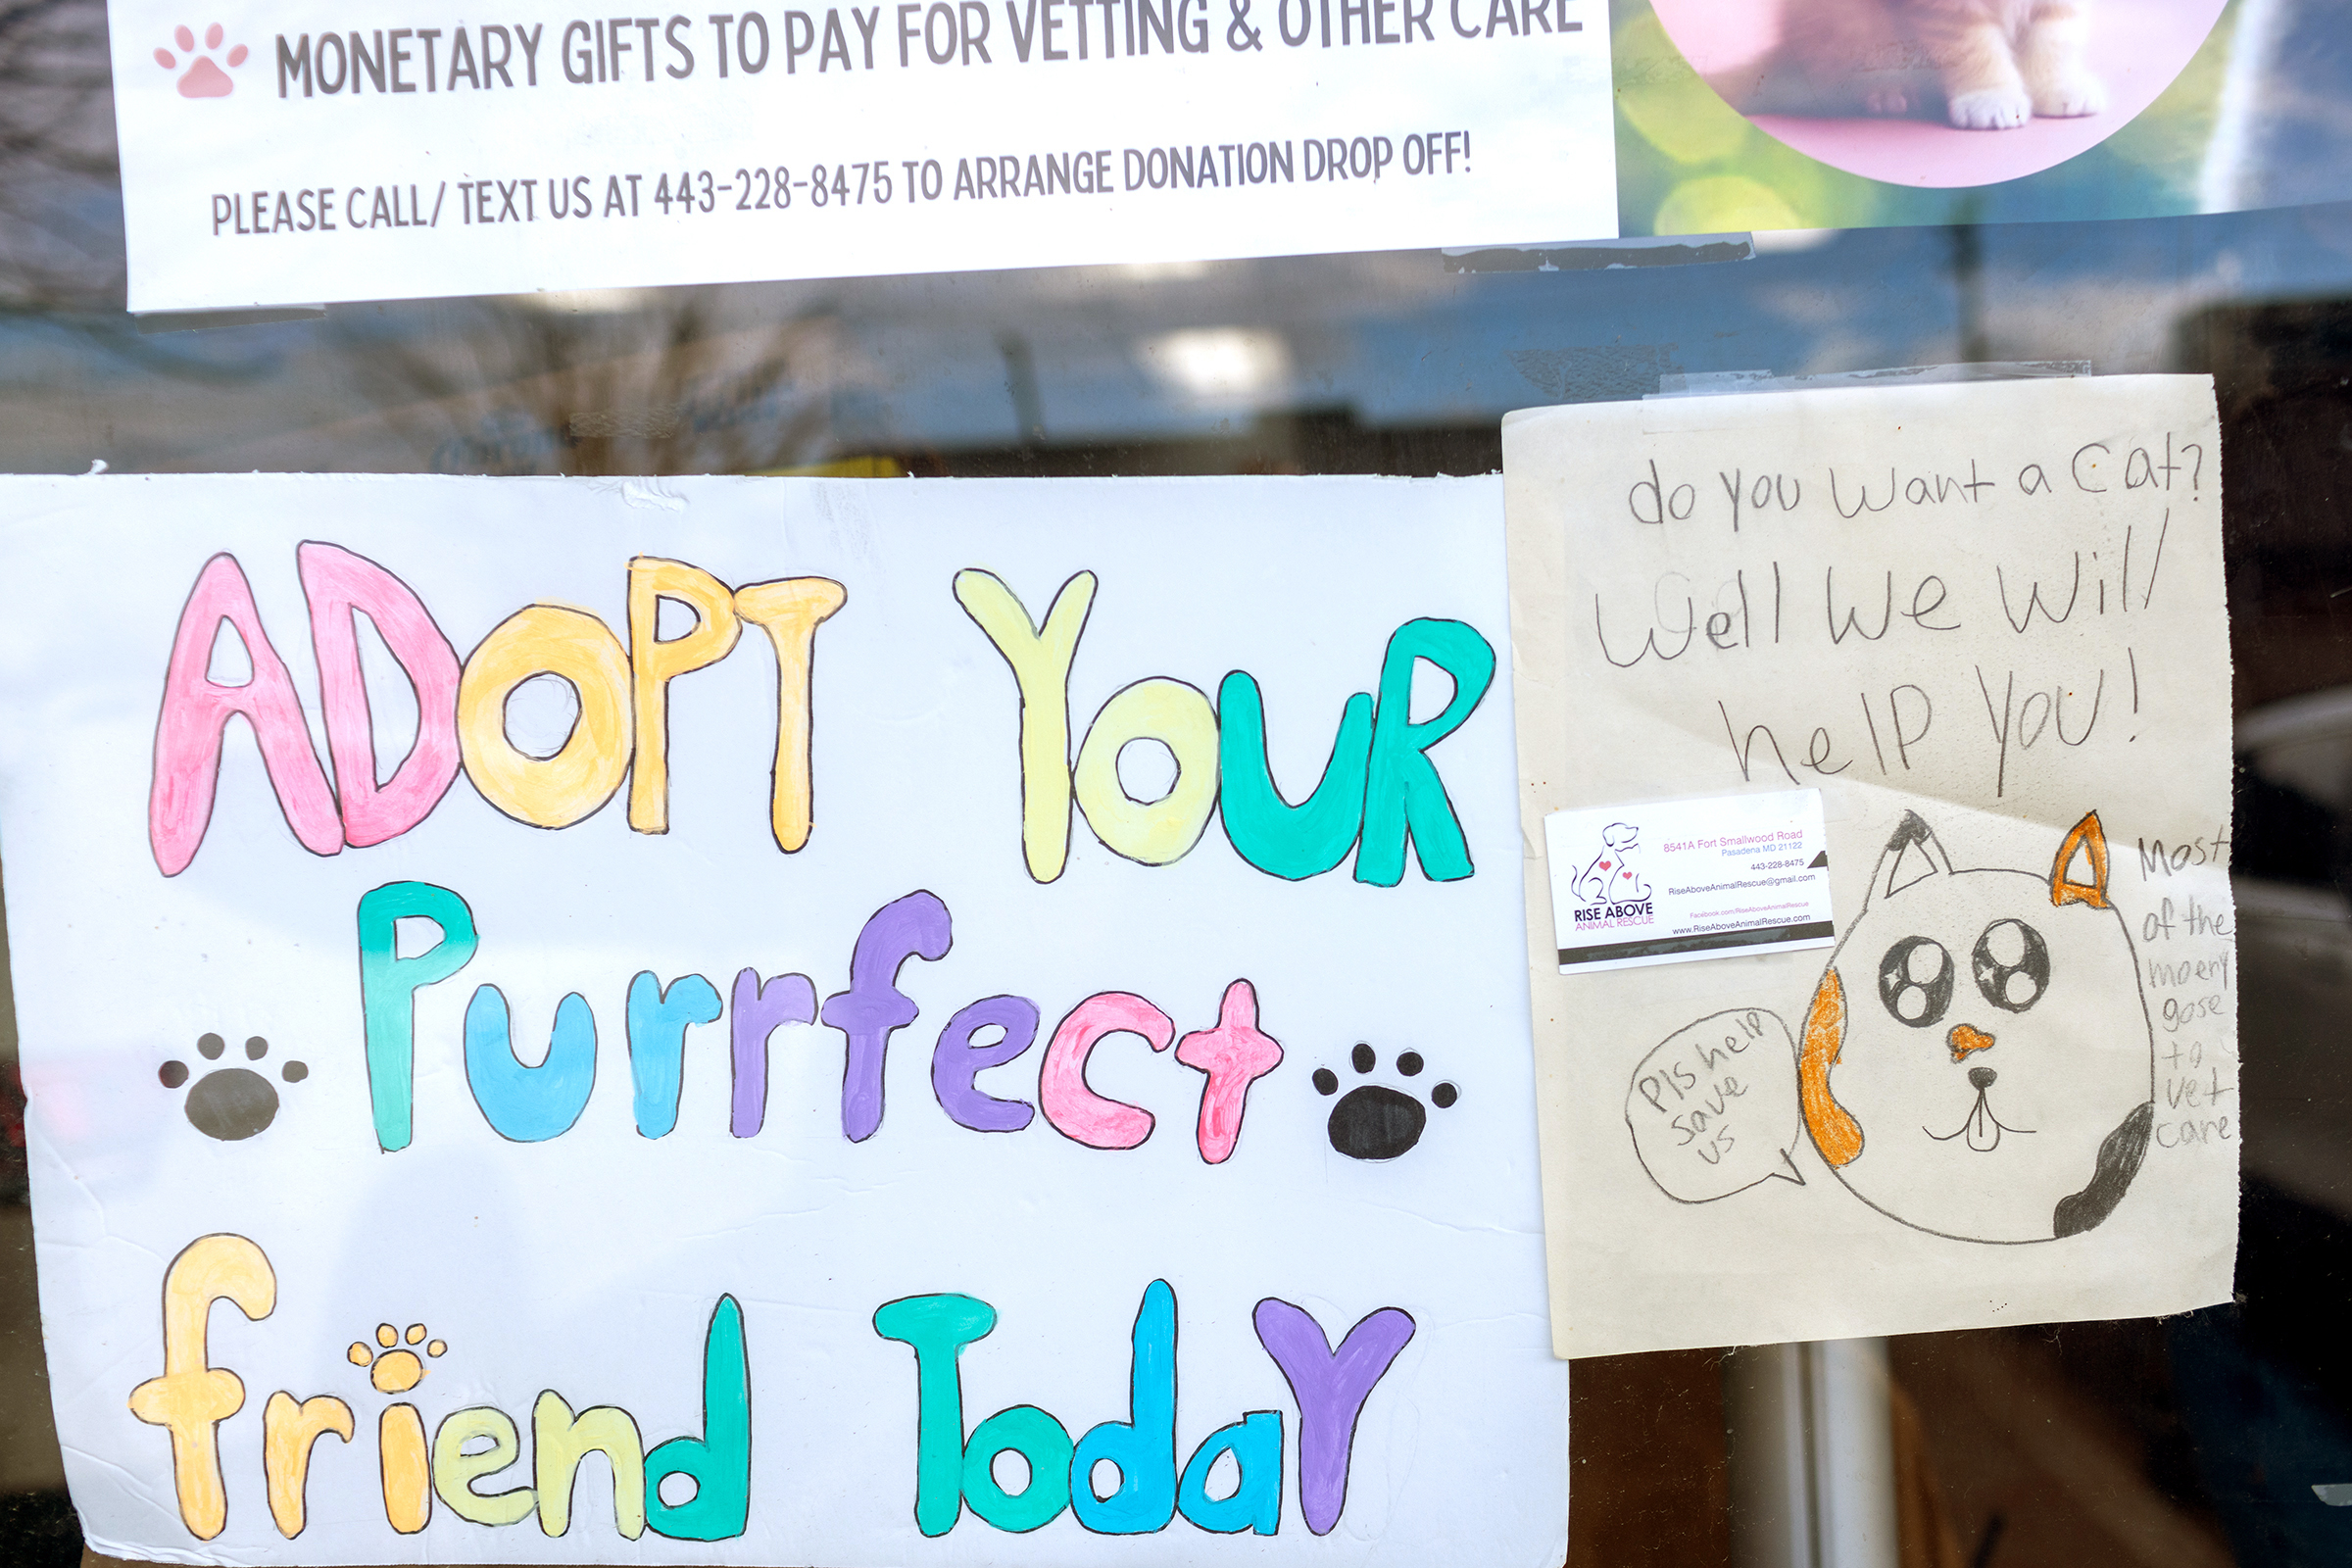 MONETARY GIFTS TO PAY FOR VETTING & OTHER CARE
PLEASE CALL/ TEXT US AT 443-228-8475 TO ARRANGE DONATION DROP OFF!
ADOPT YOUR
Purrfect
friend TodaY
do you want a cat?
Well We Will
help you!
RISE ABOVE
ANIMAL RESCUE
8541A Fort Smallwood Road
Pasadena MD 21122
443-228-8475
RiseAboveAnimalRescue@gmail.com
Facebook.com/RiseAboveAnimalRescue
www.RiseAboveAnimalRescue.com
Pls help
save
us
Most
of the
moeny
gose
to
vet
care